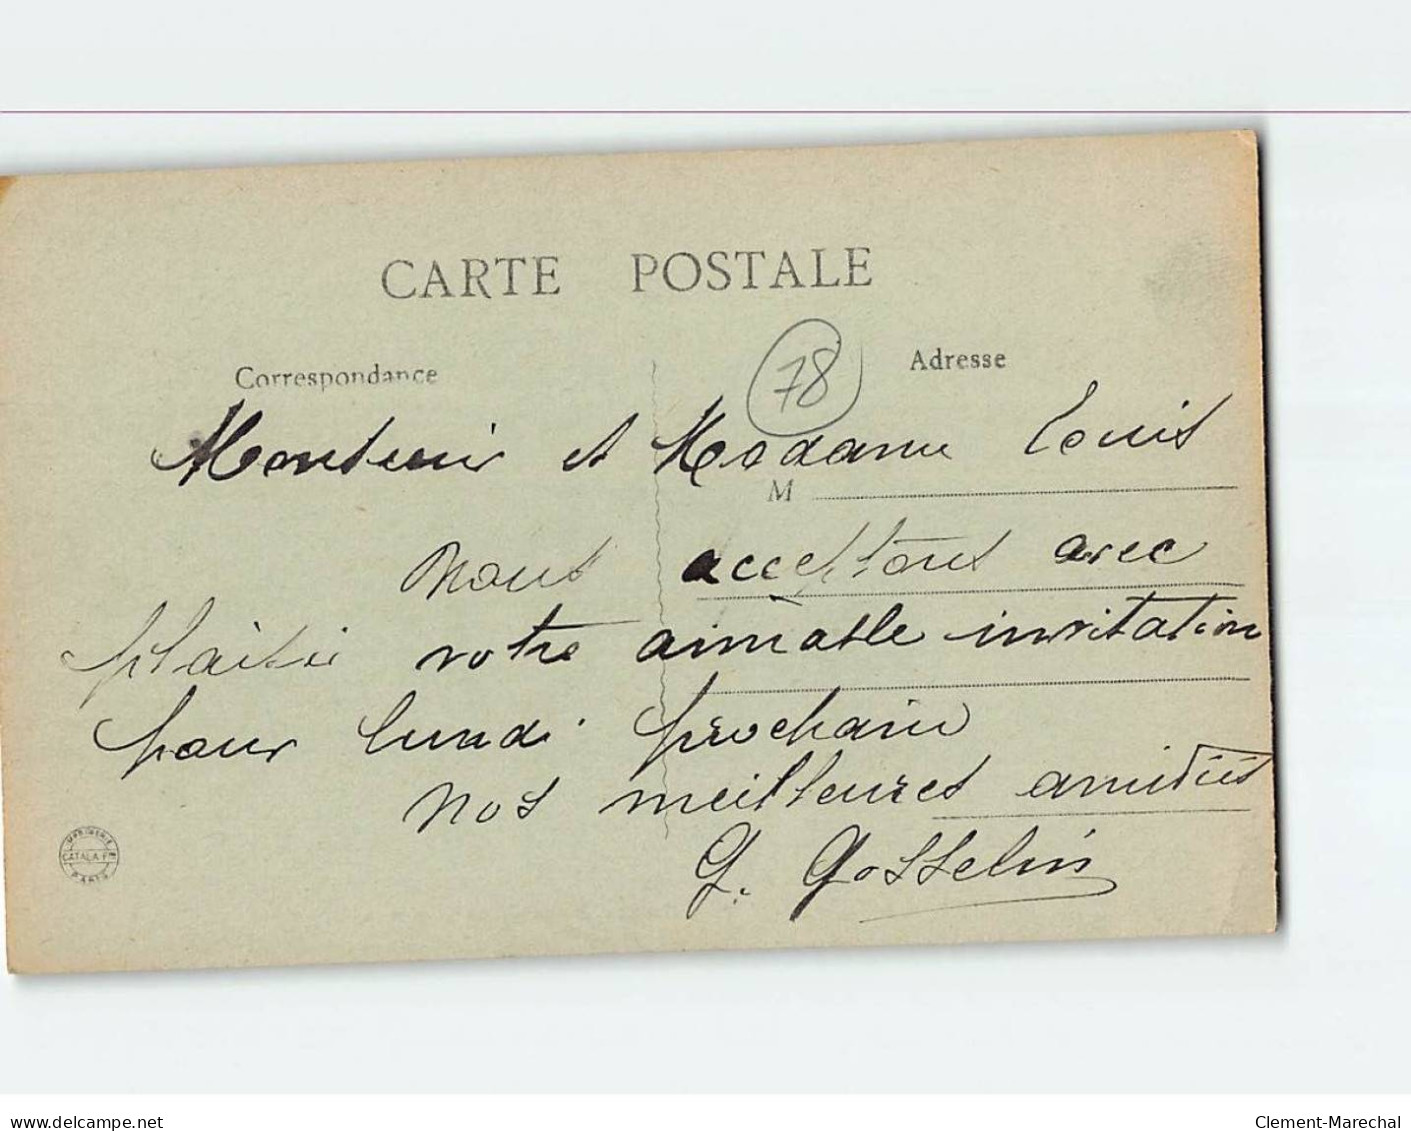 CARTE POSTALE
Correspondance
78
Adresse
Monsieur et Madame Louis
M
Nous acceptons avec
plaisir votre aimable invitation
pour lundi prochain
nos meilleures amitiés
G. Gosselin
IMPRIMERIE
CATALA Fres
PARIS
delcampe.net
Clement-Marechal